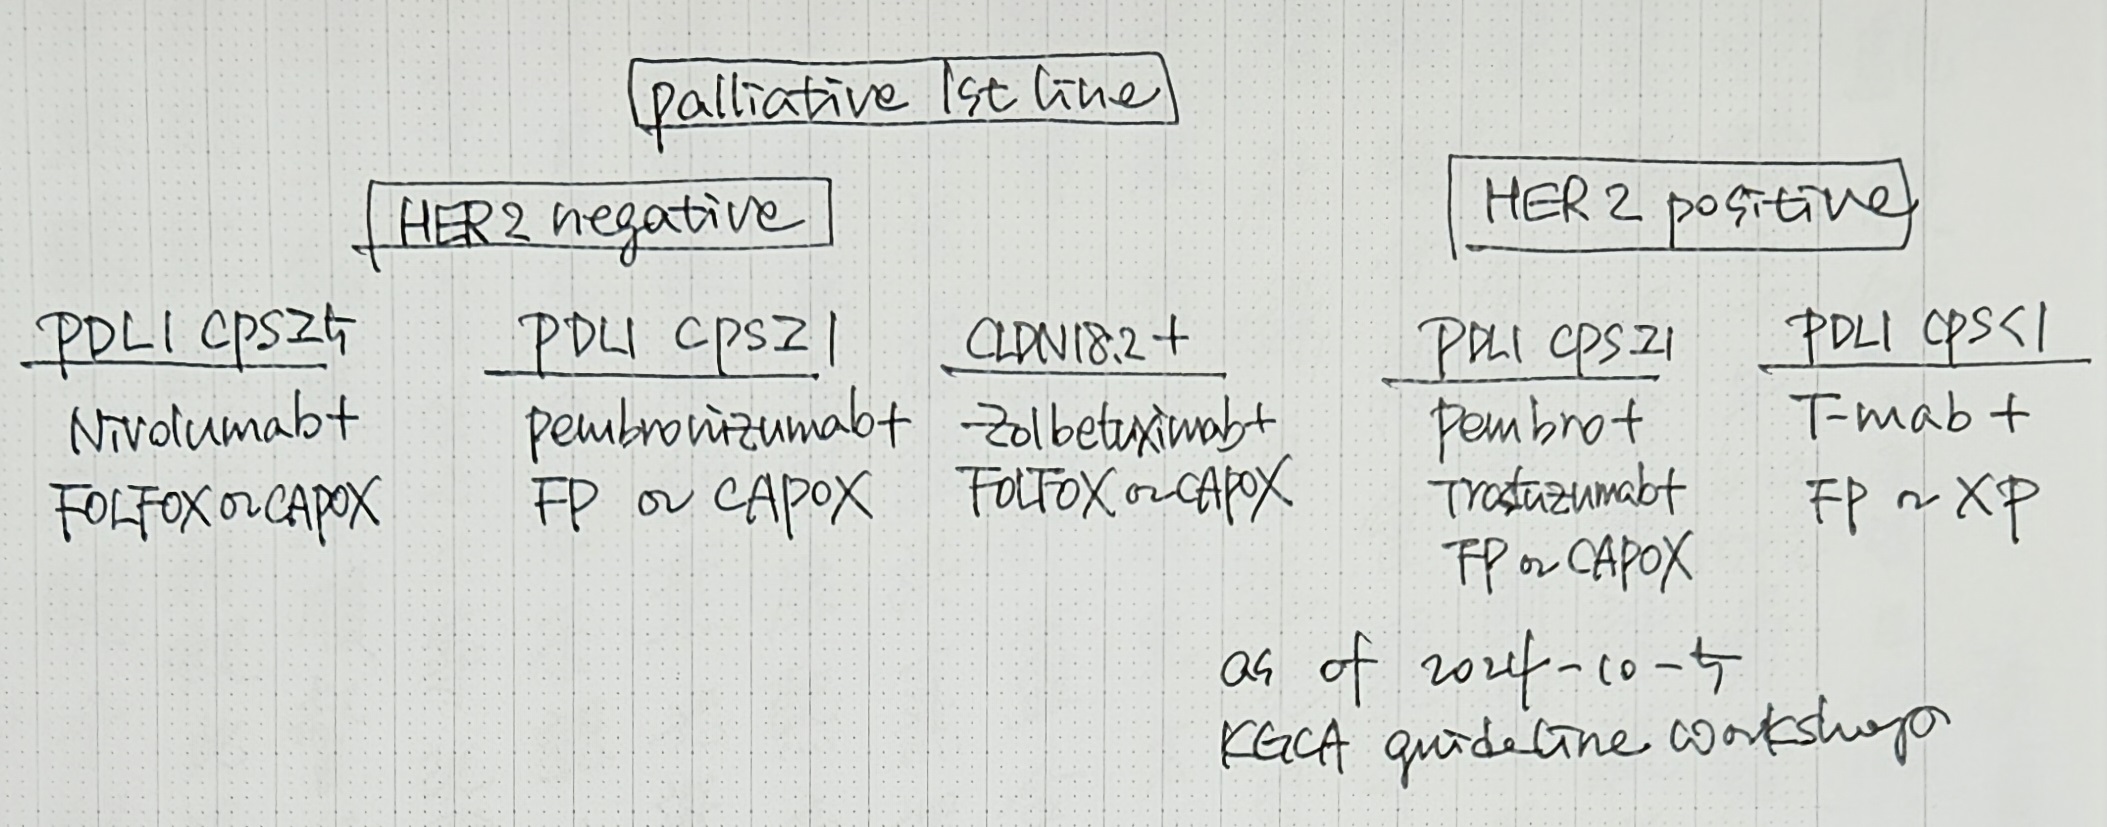 palliative 1st line
HER2 negative
HER2 positive
PDL1 CPS≥5
Nivolumab+
FOLFOX or CAPOX
PDL1 CPS≥1
pembronizumab+
FP or CAPOX
CLDN18.2+
Zolbetuximab+
FOLFOX or CAPOX
PDL1 CPS≥1
Pembro+
Trastuzumab+
FP or CAPOX
PDL1 CPS<1
T-mab+
FP or XP
as of 2024-10-5
KGCA guideline workshop